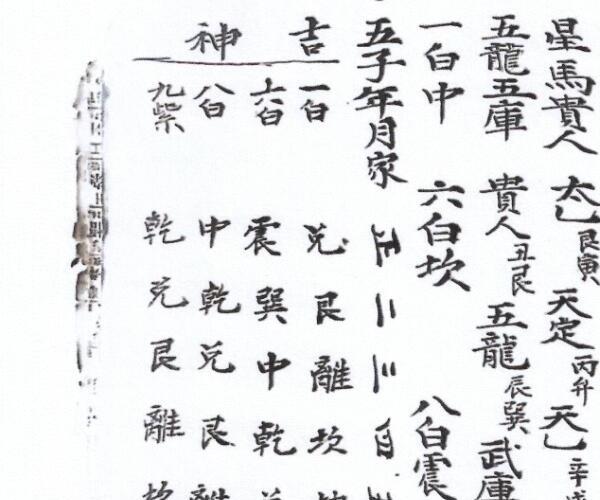 星馬貴人 太乙艮寅 天定丙 天乙辛
五龍五庫 貴人丑艮 五龍辰巽 武庫
一白中 六白坎 八白震
五子年月家 正二三自
吉神
一白 兑艮離坎
六白 震巽中乾
八白 中乾兑艮離
九紫 乾兑艮離坎